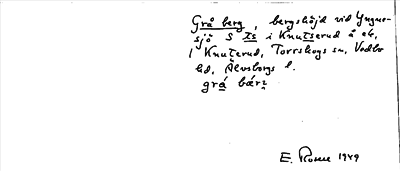 Grå berg, bergshöjd vid Yngne-
sjö S ts i Knutserud å ek,
1 Knuterud, Torrskogs sn, Vedbo
hd, Älvsborgs l.
grá bærı
E. Rosell 1949